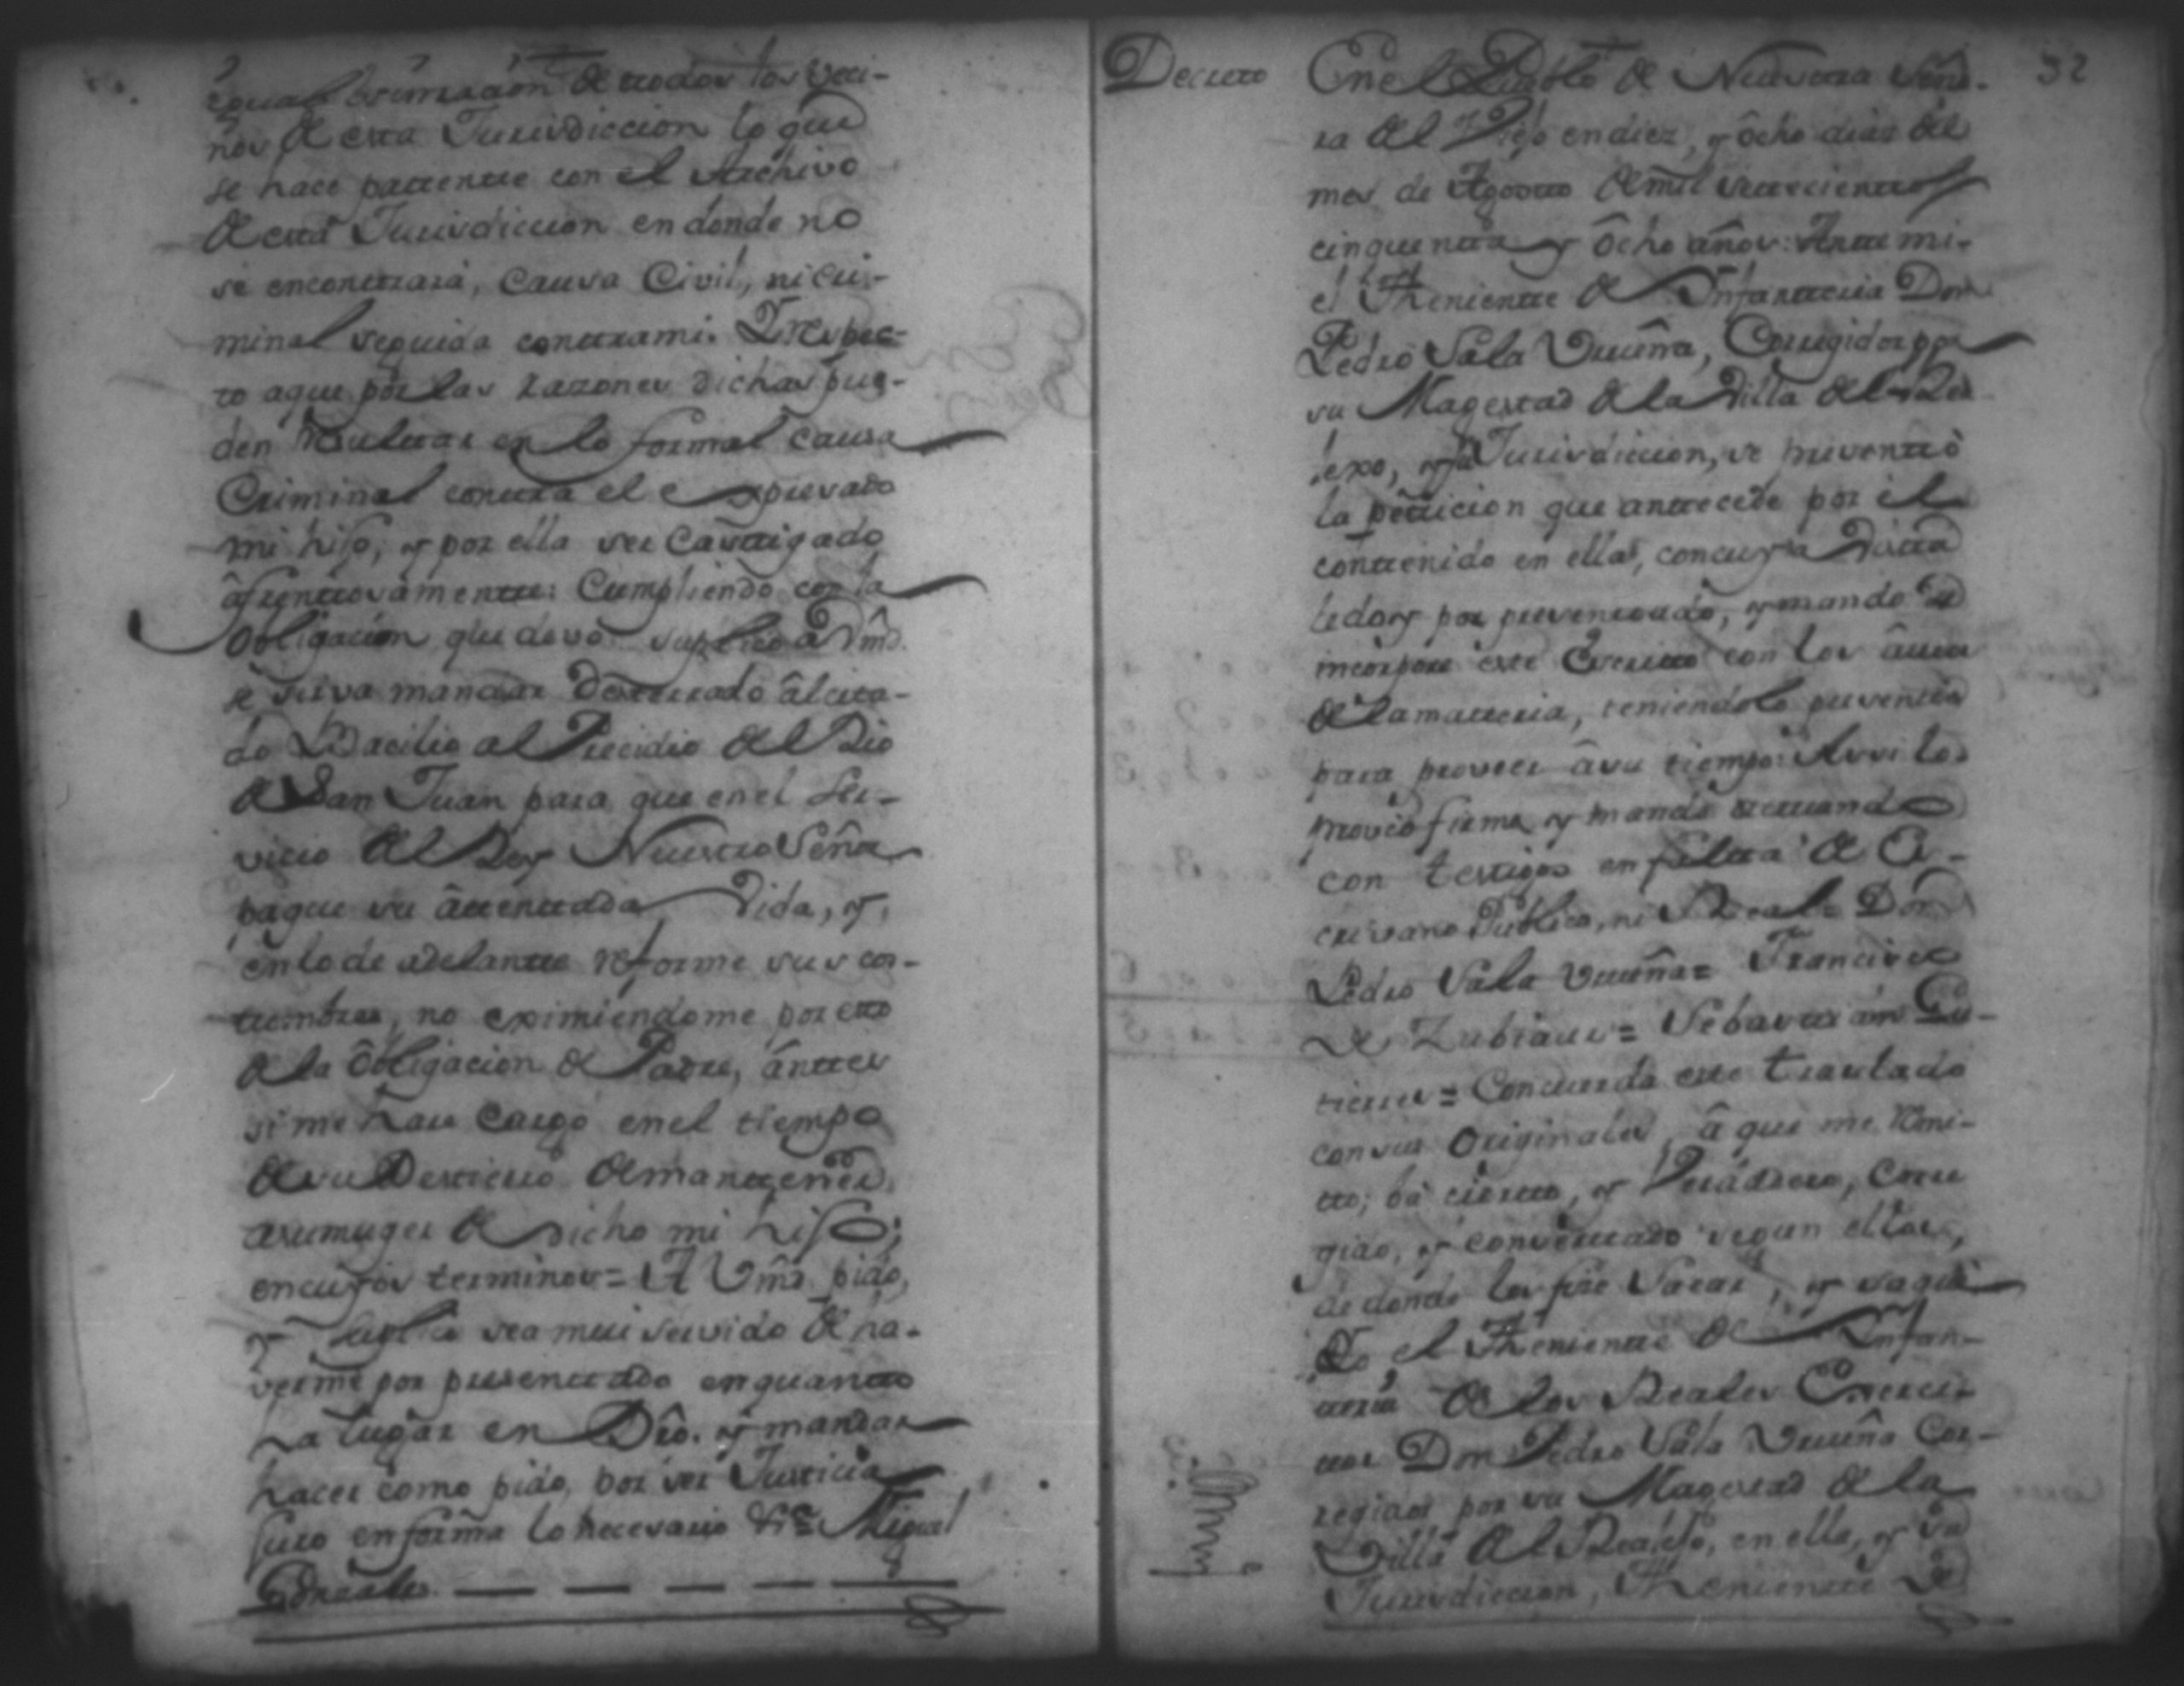 igual estimacion de ttodos los Veci-
nos de esta Jurisdiccion lo que
se hace pattentte con el Archivo
de esta Jurisdiccion en donde no
se enconttrará, Causa Civil, ni Cri-
minal seguida conttra mi. Y respec-
to aque por las razones dichas pue-
den resulttar en lo formal causa
Criminal conttra el expresado
mi hijo, y por ella ser Casttigado
âfrenttosâmentte: Cumpliendo con la
Obligacion que devo suplico a Vmd.
se sirva mandar Desterrado âl cita-
do Bacilio al Precidio del Rio
de San Juan para que en el Ser-
vicio del Rey Nuestro Señor
pague su âttenttada Vida, y
en lo de adelantte reforme sus cos-
tumbres, no eximiendome por esto
de la Obligacion de Padre, ânttes
si me hare Cargo en el tiempo
de su Destierro de manttener
a su muger de dicho mi hijo;
en cuyos terminos = A Vmd. pido,
y suplico sea mui servido de ha-
verme por presenttado en quantto
ha lugar en Dro. y mandar
hacer como pido, por ser Justicia
juro en forma lo necesario &a = Miguel
Gonzales
Decretto En el Pueblo de Nuestra Seño-
32
ra del Viejo en diez, y ôcho dias del
mes de Agostto de mil settecienttos
cinquentta y ôcho años: Antte mi
el Thenientte de Infantteria Don
Pedro Sala Vrueña, Corregidor por
su Magestad de la Villa del Rea-
lexo, y su Jurisdiccion, se presenttó
la petticion que anttecede por el
conttenido en ella, con cuya Vistta
ledoy por presenttado, y mando se
incorpore este Escritto con los âutos
de la matteria, teniendolo presentte
para proveer âsu tiempo: Assi lo
proveo firmo y mando acttuando
con testigos en faltta de Es-
crivano Publico, ni Real = Don
Pedro Sala Vrueña = Francisco
de Zubiaur = Sebasttian Gu-
tierres = Concuerda este traslado
con sus Originales, â que me remi-
tto; bá ciertto, y Verdadero, Corre
gido, y concerttado segun ellos,
de donde los hize Sacar, y saqué
Yo el Thenientte de Infan-
tteria de los Reales Exerci-
ttos Don Pedro Sala Vrueña Cor-
regidor por su Magestad de la
Villa del Realejo, en ella, y su
Jurisdiccion, Thenientte de